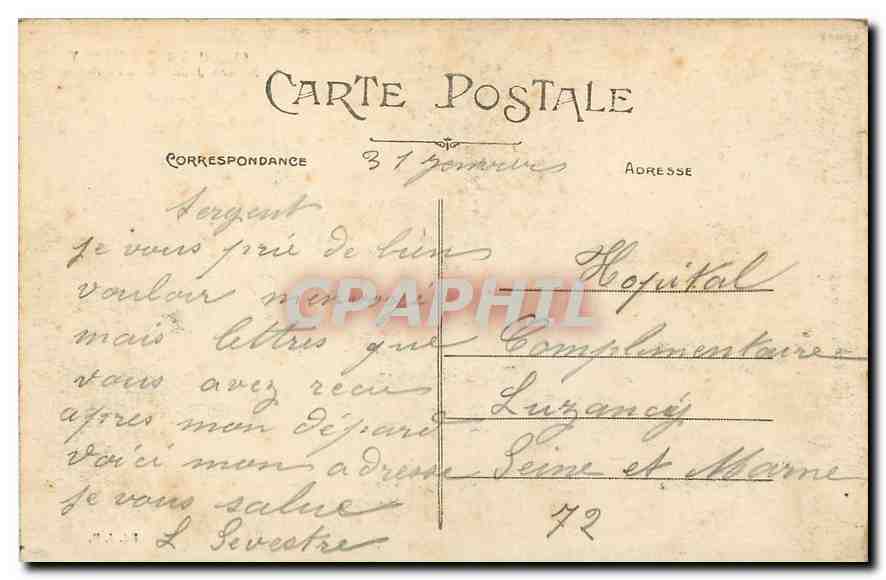 CARTE POSTALE
CORRESPONDANCE
31 Janvier
ADRESSE
Sergent
je vous prie de bien
vouloir
mais lettres que
vous avez recu
apres mon dépard
voici mon adresse
je vous salue
L Sevestre
Hopital
Complimentaire
Luzancy
Seine et Marne
72
CPAPHIL